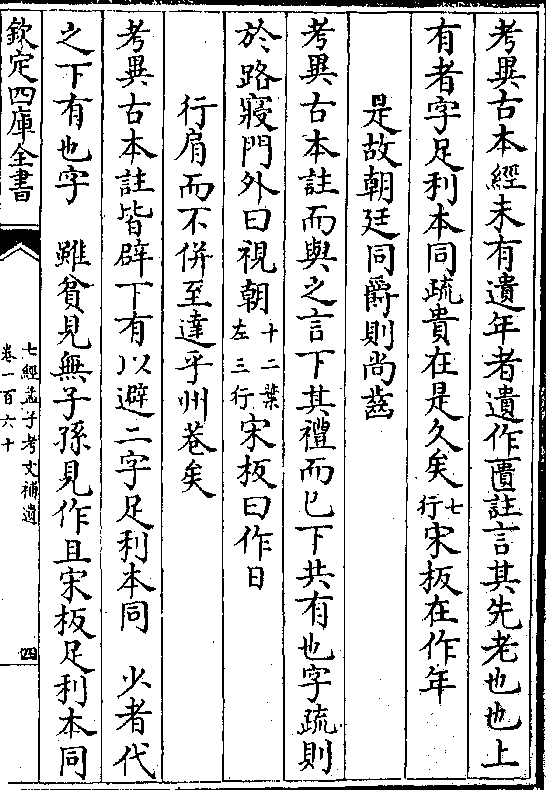 考異古本經未有遺年者遺作匱註言其先老也也上
有者字足利本同疏貴在是久矣七行宋板在作年
是故朝廷同爵則尚齒
考異古本註而與之言下其禮而已下共有也字疏則
於路寢門外曰視朝十二葉左三行宋板曰作日
行肩而不併至達乎州巷矣
考異古本註皆辟下有以避二字足利本同　少者代
之下有也字　雖貧見無子孫見作且宋板足利本同
欽定四庫全書
七經孟子考文補遺
卷一百六十
四